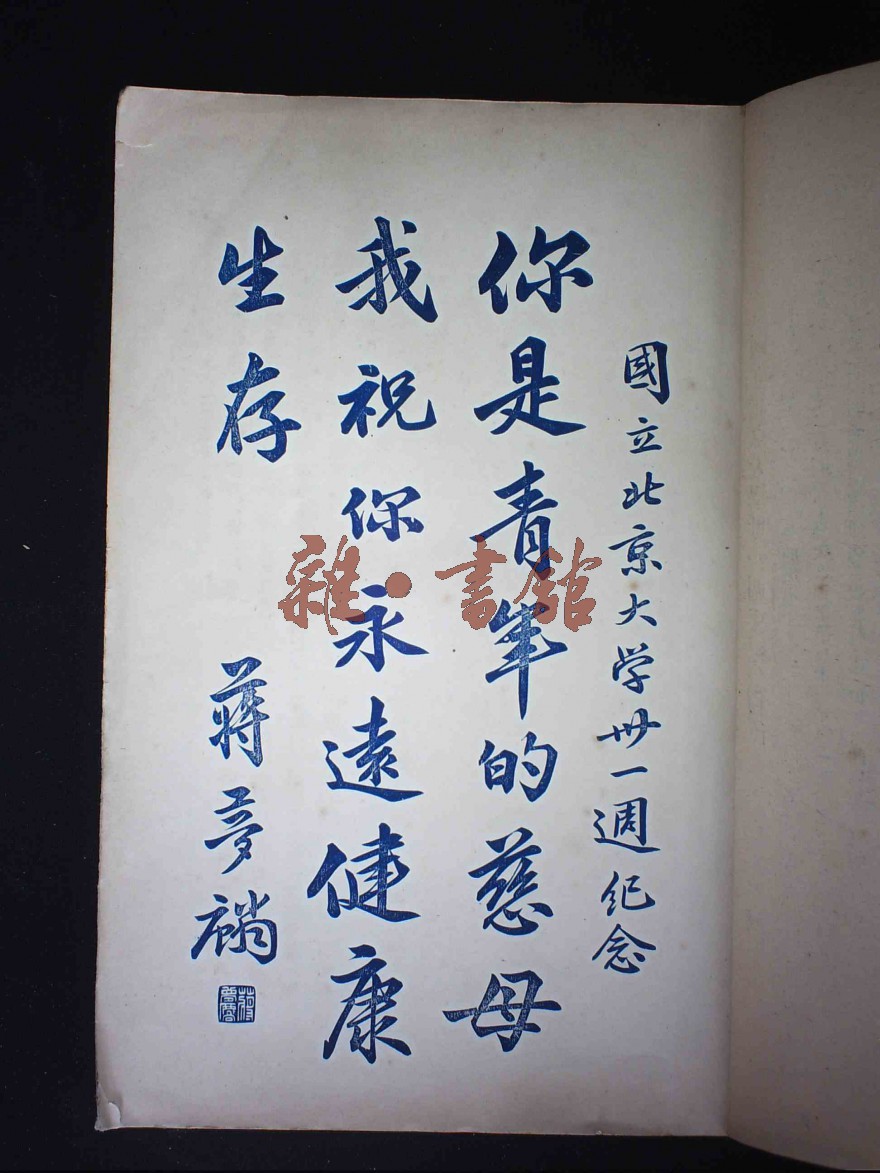 國立北京大学卅一週纪念
你是青年的慈母
我祝你永遠健康
生存
蔣夢麟
雜·書館